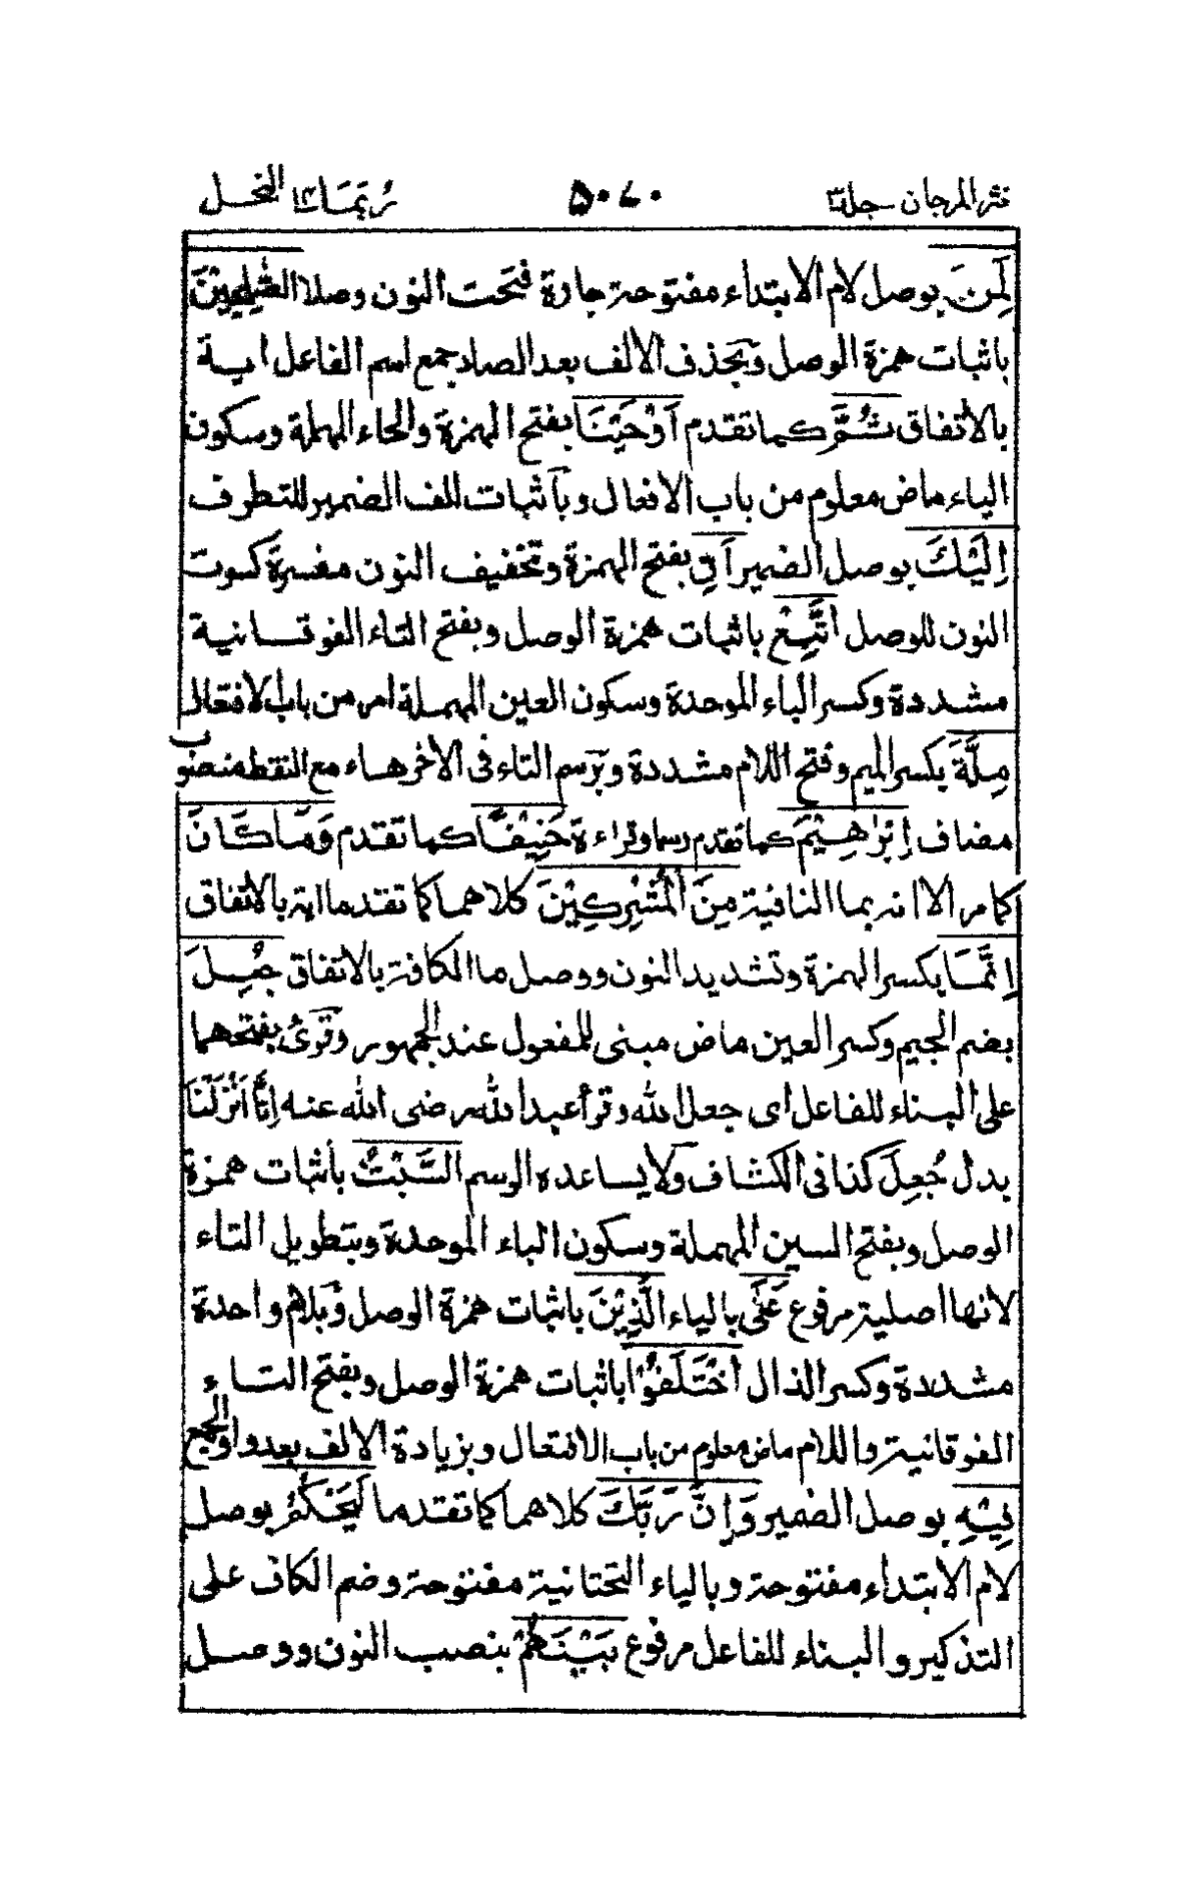 نثر المرجان جلد٣ ٥٠٧٠ رُبَمَا ١٤ النحل
لَمِنَ بوصل لام الابتداء مفتوحة جارة فتحت النون وصلا الصّٰلِحِيْنَ
باثبات همزة الوصل وبحذف الالف بعد الصاد جمع اسم الفاعل اية
بالاتفاق ثُمَّ كما تقدم اَوْحَيْنَا بفتح الهمزة والحاء المهملة وسكون
الياء ماض معلوم من باب الافعال وباثبات الف الضمير للتطرف
اِلَيْكَ بوصل الضمير اَنِ بفتح الهمزة وتخفيف النون مفسرة كسرت
النون للوصل اتَّبِعْ باثبات همزة الوصل وبفتح التاء الفوقانية
مشددة وكسر الباء الموحدة وسكون العين المهملة امر من باب لافتعال
مِلَّةَ بكسر الميم وفتح اللام مشددة وبرسم التاء فى الاخر هاء مع النقط منصوب
مضاف اِبْرٰهِيْمَ كما تقدم رسما وقراءة حَنِيْفًا كما تقدم وَمَا كَانَ
كما مر الا انه بما النافية مِنَ الْمُشْرِكِيْنَ كلاهما كما تقدما اية بالاتفاق
اِنَّمَا بكسر الهمزة وتشديد النون ووصل ما الكافة بالاتفاق جُعِلَ
بضم الجيم وكسر العين ماض مبنى للمفعول عند الجمهور وقرئ بفتحهما
على البناء للفاعل اى جعل الله وقرأ عبد الله رضى الله عنه اِنَّا اَنْزَلْنَا
بدل جُعِلَ كذا فى الكشاف ولا يساعده الرسم السَّبْتُ باثبات همزة
الوصل وبفتح السين المهملة وسكون الباء الموحدة وبتطويل التاء
لانها اصلية مرفوع عَلَى بالياء الَّذِيْنَ باثبات همزة الوصل وبلام واحدة
مشددة وكسر الذال اخْتَلَفُوْا باثبات همزة الوصل وبفتح التاء
الفوقانية واللام ماض معلوم من باب الافتعال وبزيادة الالف بعد واو الجمع
فِيْهِ بوصل الضمير وَاِنَّ رَبَّكَ كلاهما كما تقدما لَيَحْكُمُ بوصل
لام الابتداء مفتوحة وبالياء التحتانية مفتوحة وضم الكاف على
التذكير والبناء للفاعل مرفوع بَيْنَهُمْ بنصب النون ووصل